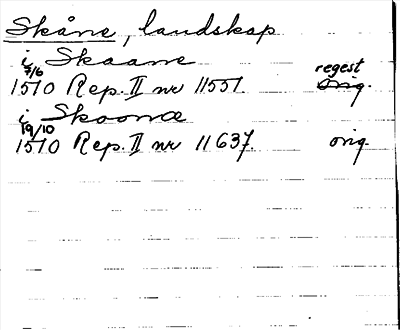 Skåne, landskap
i Skaane
7/6 regest
1510 Rep. II nr 11551 orig.
i Skoonæ
19/10
1510 Rep. II nr 11637. orig.